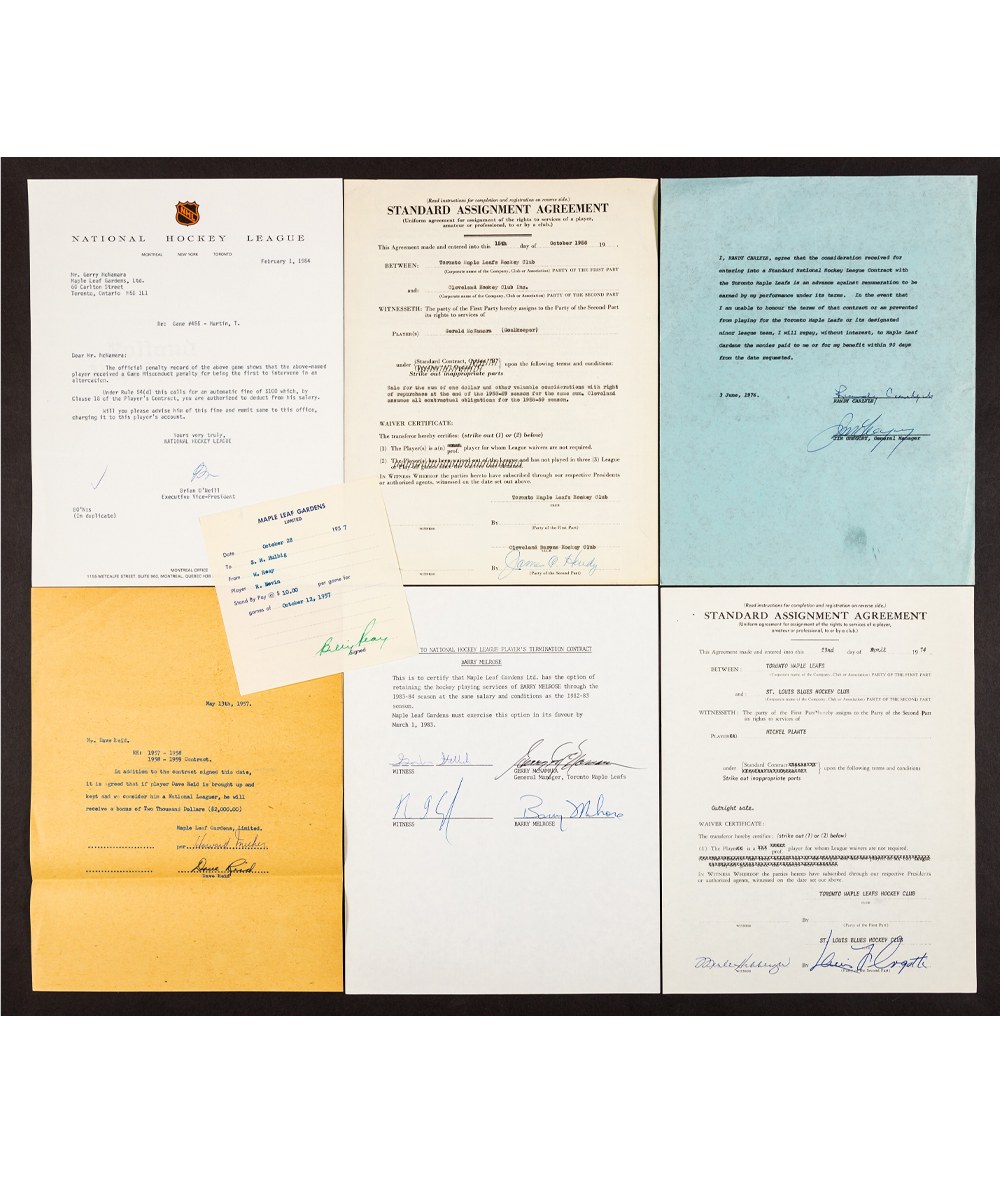 NHL
NATIONAL HOCKEY LEAGUE
MONTREAL NEW YORK TORONTO
February 1, 1984
Mr. Gerry McNamara
Maple Leaf Gardens, Ltd.
60 Carlton Street
Toronto, Ontario M5B 1L1
Re: Game #455 - Martin, T.
Dear Mr. McNamara:
The official penalty record of the above game shows that the above-named
player received a Game Misconduct penalty for being the first to intervene in an
altercation.
Under Rule 54(d) this calls for an automatic fine of $100 which, by
Clause 18 of the Player's Contract, you are authorized to deduct from his salary.
Will you please advise him of this fine and remit same to this office,
charging it to this player's account.
Yours very truly,
NATIONAL HOCKEY LEAGUE
Brian O'Neill
Executive Vice-President
(In duplicate)
MONTREAL OFFICE
1155 METCALFE STREET, SUITE 960, MONTREAL, QUEBEC H3B
(Read instructions for completion and registration on reverse side.)
STANDARD ASSIGNMENT AGREEMENT
(Uniform agreement for assignment of the rights to services of a player,
amateur or professional, to or by a club.)
This Agreement made and entered into this 15th day of October 1958 19
BETWEEN: Toronto Maple Leafs Hockey Club
(Corporate name of the Company, Club or Association) PARTY OF THE FIRST PART
and: Cleveland Hockey Club Inc.
(Corporate name of the Company, Club or Association) PARTY OF THE SECOND PART
WITNESSETH: The party of the First Party hereby assigns to the Party of the Second Part
its rights to services of
PLAYER(S) Gerald McNamara (Goalkeeper)
under (Standard Contract, upon the following terms and conditions:
Strike out inappropriate parts
Sale for the sum of one dollar and other valuable considerations with right
of repurchase at the end of the 1958-59 season for the same sum. Cleveland
assumes all contractual obligations for the 1958-59 season.
WAIVER CERTIFICATE:
The transferor hereby certifies: (strike out (1) or (2) below)
(1) The Player(s) is a(n) prof. player for whom League waivers are not required.
(2) The Player(s) has been waived out of the League and has not played in three (3) League
IN WITNESS WHEREOF the parties hereto have subscribed through our respective Presidents
or authorized agents, witnessed on the date set out above.
Toronto Maple Leafs Hockey Club
CLUB
WITNESS
By
(Party of the First Part)
Cleveland Barons Hockey Club
WITNESS
By James C. Hendy
(Party of the Second Part)
I, RANDY CARLYLE, agree that the consideration received for
entering into a Standard National Hockey League Contract with
the Toronto Maple Leafs is an advance against remuneration to be
earned by my performance under its terms. In the event that
I am unable to honour the terms of that contract or am prevented
from playing for the Toronto Maple Leafs or its designated
minor league team, I will repay, without interest, to Maple Leaf
Gardens the monies paid to me or for my benefit within 90 days
from the date requested.
3 June, 1976.
Randy Carlyle
RANDY CARLYLE
JIM GREGORY, General Manager
MAPLE LEAF GARDENS
LIMITED
1957
Date October 28
To S. H. Mulbig
From W. Reay
Player R. Nevin
Stand By Pay @ $ 10.00 per game for
games of October 12, 1957
Billy Reay
Signed
May 13th, 1957.
Mr. Dave Reid.
RE: 1957 - 1958
1958 - 1959 Contract.
In addition to the contract signed this date,
it is agreed that if player Dave Reid is brought up and
kept and we consider him a National Leaguer, he will
receive a bonus of Two Thousand Dollars ($2,000.00)
Maple Leaf Gardens, Limited.
per
Dave Reid
Dave Reid
TO NATIONAL HOCKEY LEAGUE PLAYER'S TERMINATION CONTRACT
BARRY MELROSE
This is to certify that Maple Leaf Gardens Ltd. has the option of
retaining the hockey playing services of BARRY MELROSE through the
1983-84 season at the same salary and conditions as the 1982-83
season.
Maple Leaf Gardens must exercise this option in its favour by
March 1, 1983.
WITNESS
GERRY McNAMARA
General Manager, Toronto Maple Leafs
WITNESS
Barry Melrose
BARRY MELROSE
(Read instructions for completion and registration on reverse side.)
STANDARD ASSIGNMENT AGREEMENT
(Uniform agreement for assignment of the rights to services of a player,
amateur or professional, to or by a club.)
This Agreement made and entered into this 23rd day of March 19 74
BETWEEN: TORONTO MAPLE LEAFS
(Corporate name of the Company, Club or Association) PARTY OF THE FIRST PART
and: ST. LOUIS BLUES HOCKEY CLUB
(Corporate name of the Company, Club or Association) PARTY OF THE SECOND PART
WITNESSETH: The party of the First Part hereby assigns to the Party of the Second Part
its rights to services of
PLAYER(S) MICHEL PLANTE
under (Standard Contract upon the following terms and conditions
Strike out inappropriate parts
Outright sale.
WAIVER CERTIFICATE:
The transferor hereby certifies: (strike out (1) or (2) below)
(1) The Player is a prof. player for whom League waivers are not required.
IN WITNESS WHEREOF the parties hereto have subscribed through our respective Presidents
or authorized agents, witnessed on the date set out above.
TORONTO MAPLE LEAFS HOCKEY CLUB
CLUB
WITNESS
BY
(Party of the First Part)
ST. LOUIS BLUES HOCKEY CLUB
WITNESS
BY
(Party of the Second Part)